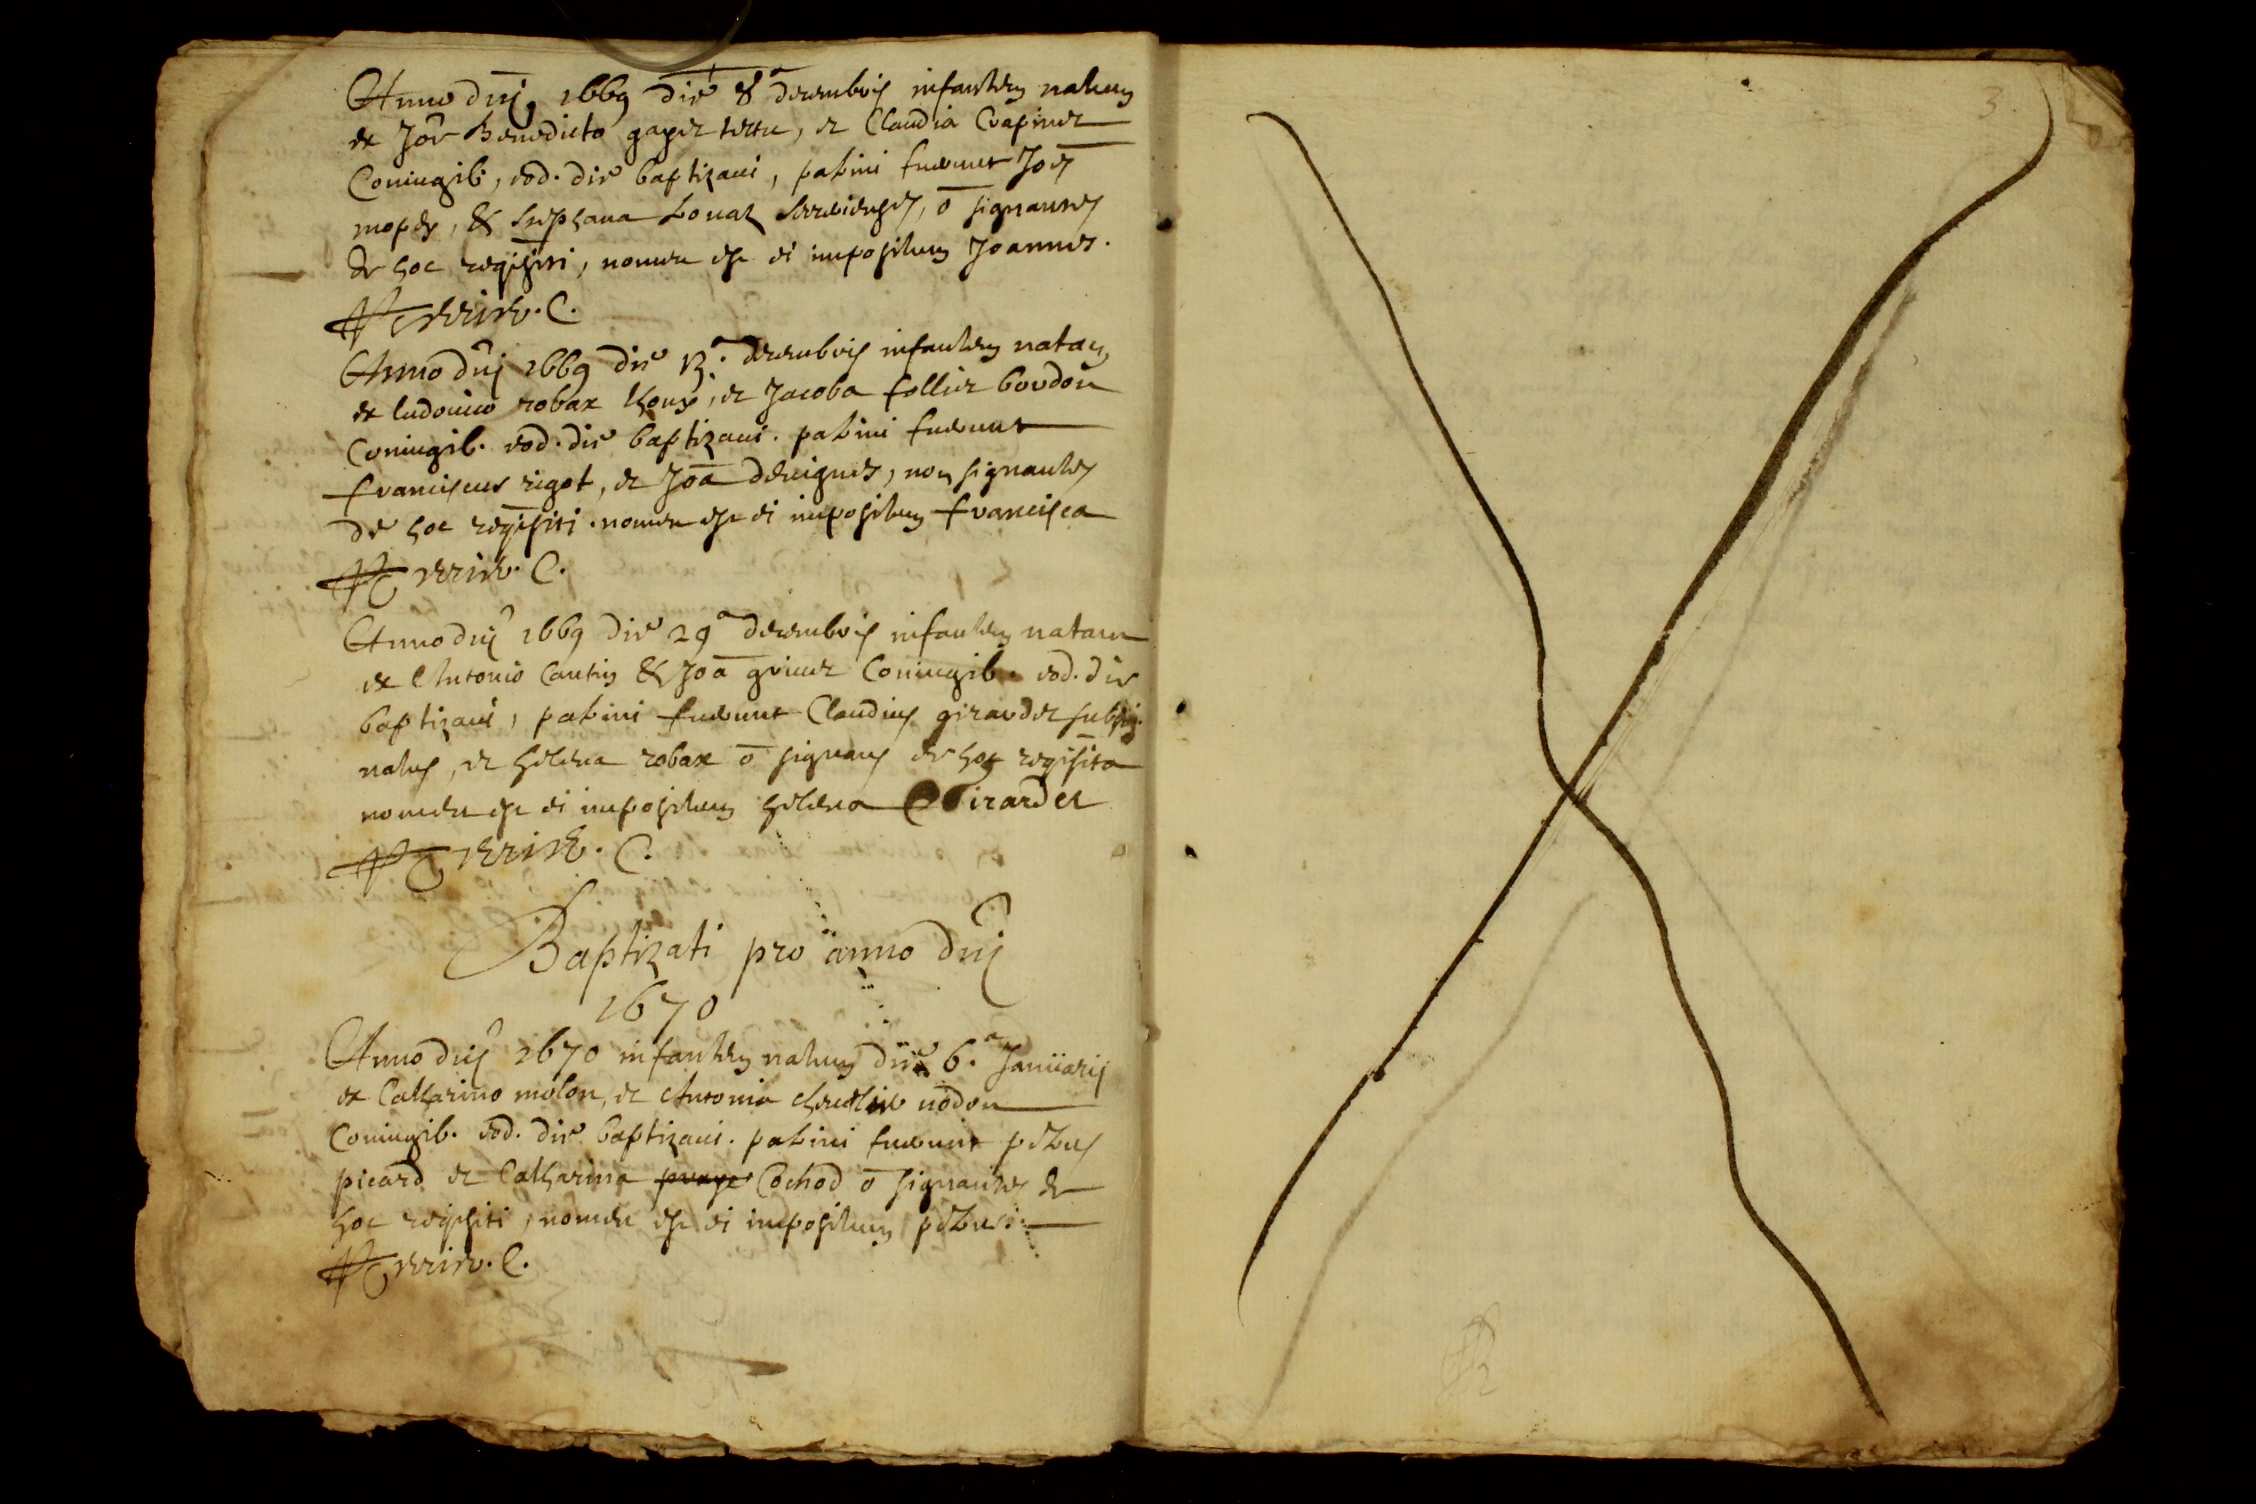 Anno dnj 1669 die 8a decembris infantem natum
ex Joe Benedicto et Claudia Crapiner
Coniugib, eod. die baptizavi, patrini fuerunt Joes
moses, & stephana bouaz, o signantes
de hoc registri, nomen est ei impositum Joannes.
Perrier. C.
Anno dnj 1669 die 13a decembris infantem natam
ex ludovico robax, et Jacoba follier bordon
Coniugib. eod. die baptizavi. patrini fuerunt
franciscus rigot, et Joa, non signantes
de hoc registri. nomen est ei impositum francisca
Perrier. C.
Anno dnj 1669 die 29a decembris infantem natam
ex Antonio Cautin & Joa Coniugib. eod. die
baptizavi, patrini fuerunt Claudius girardet subsig-
natus, et helena robax o signans de hoc registro
nomen est ei impositum helena Girardet
Perrier. C.
Baptizati pro anno dnj
1670
Anno dnj 1670 infantem natum die 6.a Januarij
ex Catharino molon, et Antonia nodon
Coniugib. eod. die baptizavi. patrini fuerunt petrus
picard et Catharina Cochod o signantes de
hoc registri, nomen est ei impositum petrus.
Perrier. C.
3